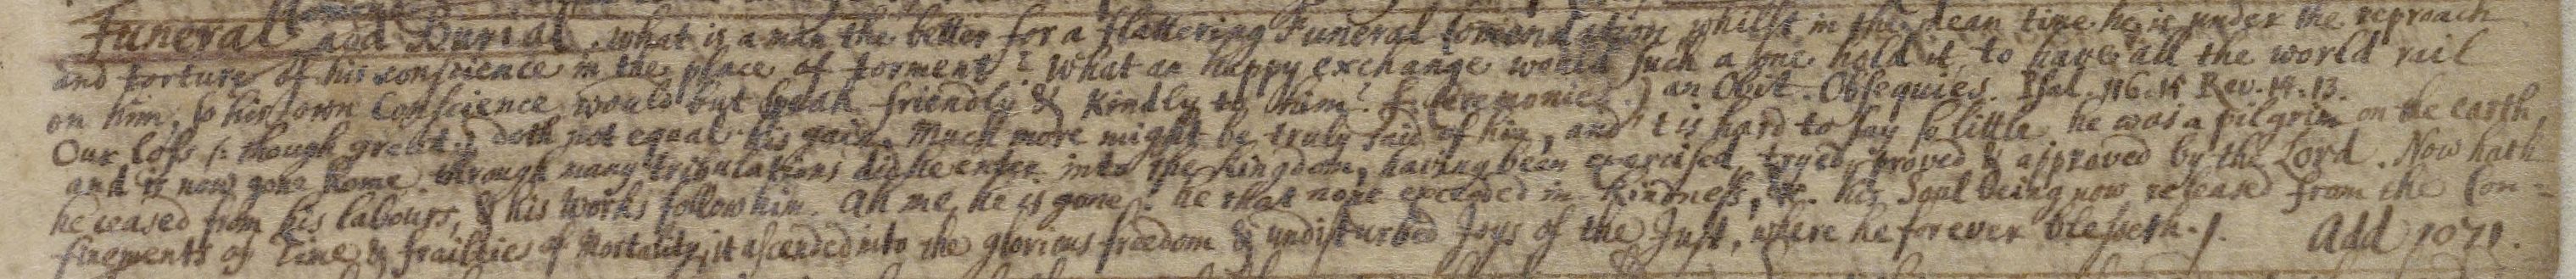 Funeral and Burial. what is a man the better for a flattering Funeral Comendation whilst in the mean time he is under the reproach
and torture of his conscience in the place of torment? What an happy exchange would such a one hold it, to have all the world rail
on him, so his own Conscience would but speak friendly & kindly to him! ceremonies.) an Obit. Obsequies. Psal. 116.15 Rev. 14. 13.
Our loss (though great) doth not equal his gain. Much more might be truly said of him, and 't is hard to say so little. he was a pilgrim on the earth,
and is now gone home. through many tribulations did he enter into the kingdom, having been exercised, tryed, proved & approved by the Lord. Now hath
he ceased from his labours, & his works follow him. Ah me, he is gone! he that none exceeded in kindness, &c. his Soul being now released from the Con=
finements of Time & frailties of Mortality, it ascended into the glorious freedom & undisturbed Joys of the Just, where he forever blesseth. /. Add 1071.